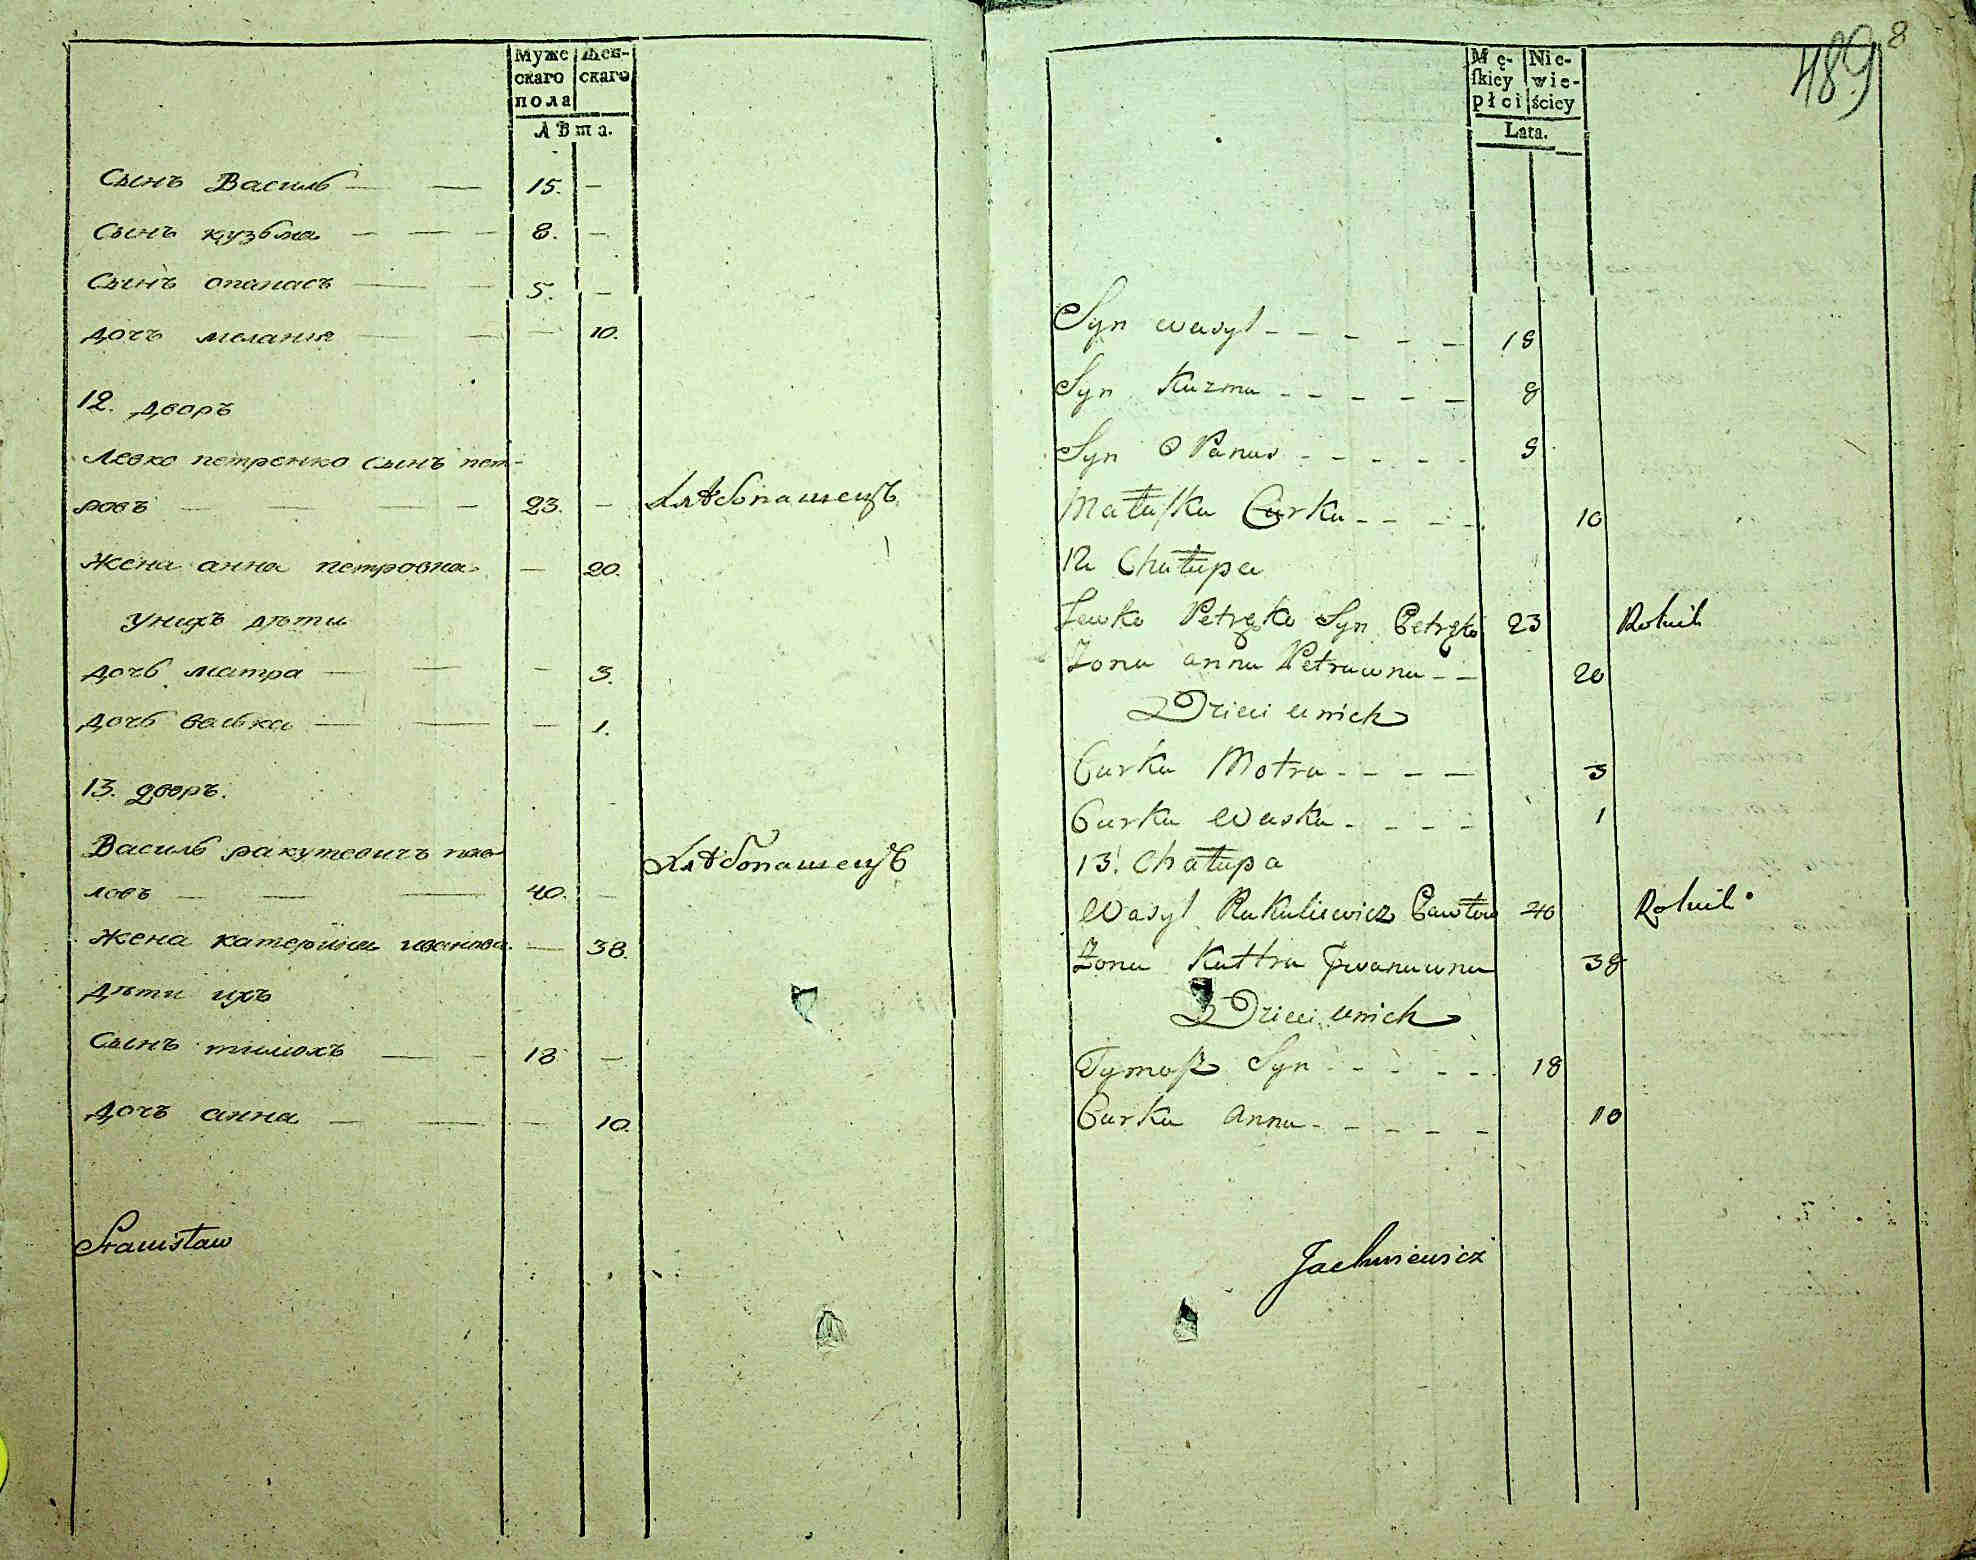 Муже Жен-
скаго скаго
пола
Лѣта.
Сынъ Василь 15. -
Сынъ кузьма 8. -
Сынъ опанасъ 5. -
дочъ мелания - 10.
12. дворъ
Левко петренко сынъ пет-
ровъ 23. - Хлѣбопашецъ
жена анна петровна - 20.
Унихъ дѣти
дочь матра - 3.
дочь васька - 1.
13. дворъ.
Василь ракутевичъ пав-
ловъ 40. - Хлѣбопашецъ
жена катерина иванова - 38.
Дѣти ихъ
Сынъ тимохъ 18 -
дочъ анна - 10.
Stanisław
489 8
Mę- Nie-
ſkiey wie-
płci ściey
Lata.
Syn wasyl 18
Syn Kuzma 8
Syn OPanas 5
Małaſka Curka 10
12 Chałupa
Lewko Petręko Syn Petręko 23 Rolnik
Żona anna Petrawna 20
Dzieci unich
Curka Motra 3
Curka Waska 1
13. Chałupa
Wasyl Pawłow 40 Rolnik
Żona Kattra Jwanawna 38
Dzieci unich
Tymoſz Syn 18
Curka anna 10
Jachniewicz